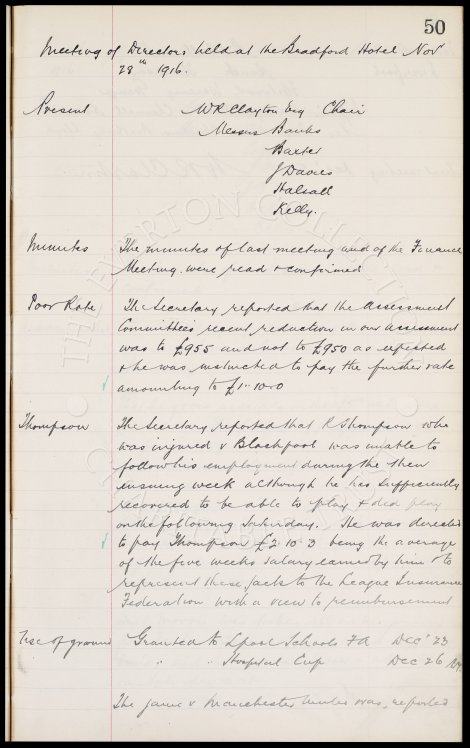 50
Meeting of Directors held at the Bradford Hotel Nov
28th 1916.
Present W R Clayton Esq Chair
Messrs Banks
Baxter
J Davies
Halsall
Kelly.
Minutes The minutes of last meeting and of the Finance
Meeting were read & confirmed
Poor Rate The Secretary reported that the Assessment
Committees recent reduction in our assessment
was to £955 and not to £950 as reported
& he was instructed to pay the further rate
amounting to £1-10-0
Thompson The Secretary reported that R Thompson who
was injured v Blackpool was unable to
follow his employment during the then
ensuing week although he has sufficiently
recovered to be able to play & did play
on the following Saturday. He was directed
to pay Thompson £2 10 3 being the average
of the five weeks salary earned by him & to
represent these facts to the League Insurance
Federation with a view to reimbursement
Use of ground Granted to Lpool Schools F A Dec 23
" " Hospital Cup Dec 26
The game v Manchester United was, reported
THE EVERTON COLLECTION